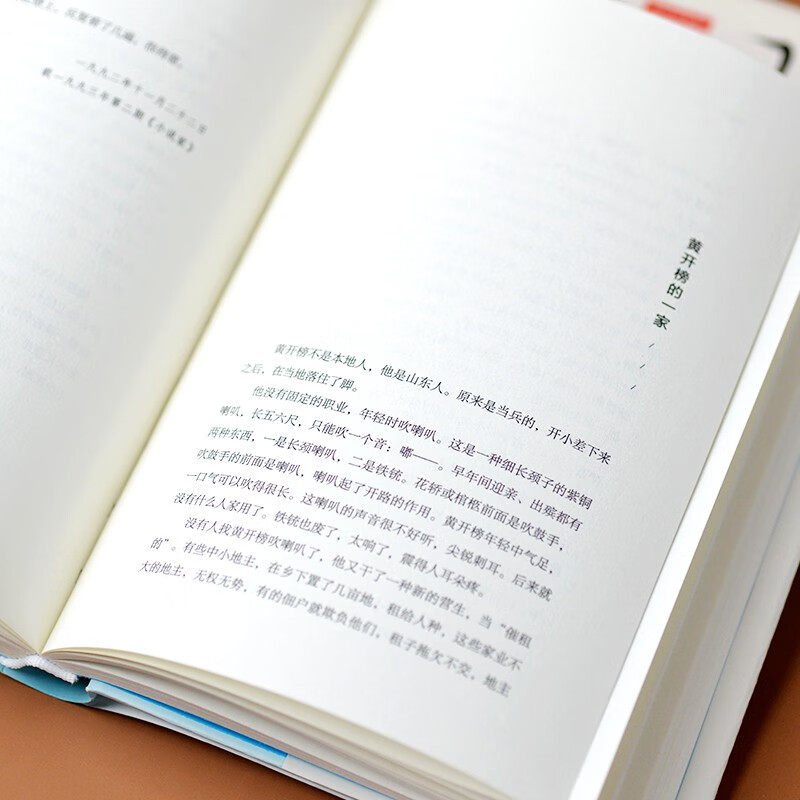 一九九二年十一月二十二日
载一九九三年第二期《小说家》
黄开榜的一家
黄开榜不是本地人，他是山东人。原来是当兵的，开小差下来
之后，在当地落住了脚。
他没有固定的职业，年轻时吹喇叭。这是一种细长颈子的紫铜
喇叭，长五六尺，只能吹一个音：嘟——。早年间迎亲、出殡都有
两种东西，一是长颈喇叭，二是铁铳。花轿或棺柩前面是吹鼓手，
吹鼓手的前面是喇叭，喇叭起了开路的作用。黄开榜年轻中气足，
一口气可以吹得很长。这喇叭的声音很不好听，尖锐刺耳。后来就
没有什么人家用了。铁铳也废了，太响了，震得人耳朵疼。
没有人找黄开榜吹喇叭了，他又干了一种新的营生，当“催租
的”。有些中小地主，在乡下置了几亩地，租给人种，这些家业不
大的地主，无权无势，有的佃户就欺负他们，租子拖欠不交，地主